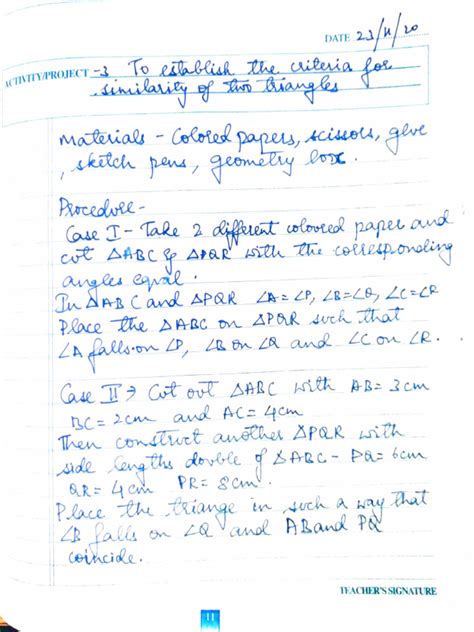 DATE 23/11/20
ACTIVITY/PROJECT -3 To establish the criteria for
similarity of two triangles
Materials - Colored papers, scissors, glue
, sketch pens, geometry box.
Procedure-
Case I - Take 2 different coloured paper and
cut ΔABC & ΔPQR with the corresponding
angles equal.
In ΔABC and ΔPQR ∠A=∠P, ∠B=∠Q, ∠C=∠R
Place the ΔABC on ΔPQR such that
∠A falls on ∠P, ∠B on ∠Q and ∠C on ∠R.
Case II → Cut out ΔABC with AB= 3cm
BC= 2cm and AC= 4cm
Then construct another ΔPQR with
side lengths double of ΔABC - PQ= 6cm
QR= 4cm PR= 8cm.
Place the triange in such a way that
∠B falls on ∠Q and AB and PQ
coincide.
TEACHER'S SIGNATURE
11